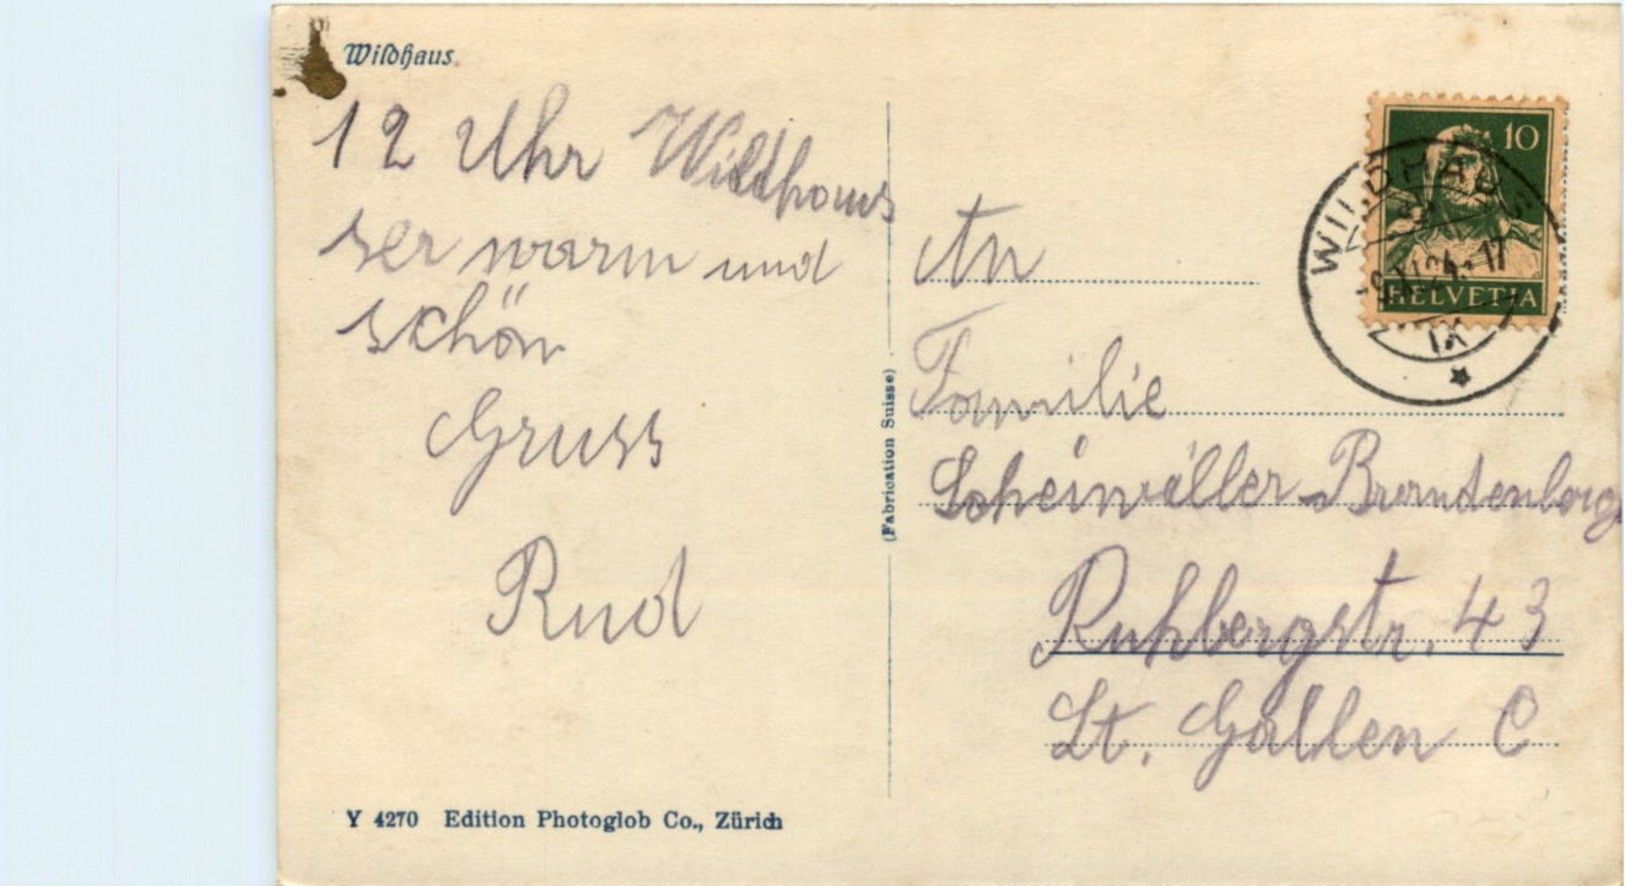 Wildhaus.
12 Uhr Wildhaus
ser warm und
schön
Gruss
Rud
Y 4270 Edition Photoglob Co., Zürich
(Fabrication Suisse)
10
HELVETIA
WILDHAUS
IX
An
Familie
Scheiwiller-Brandenberg
Ruhbergstr. 43
St. Gallen C